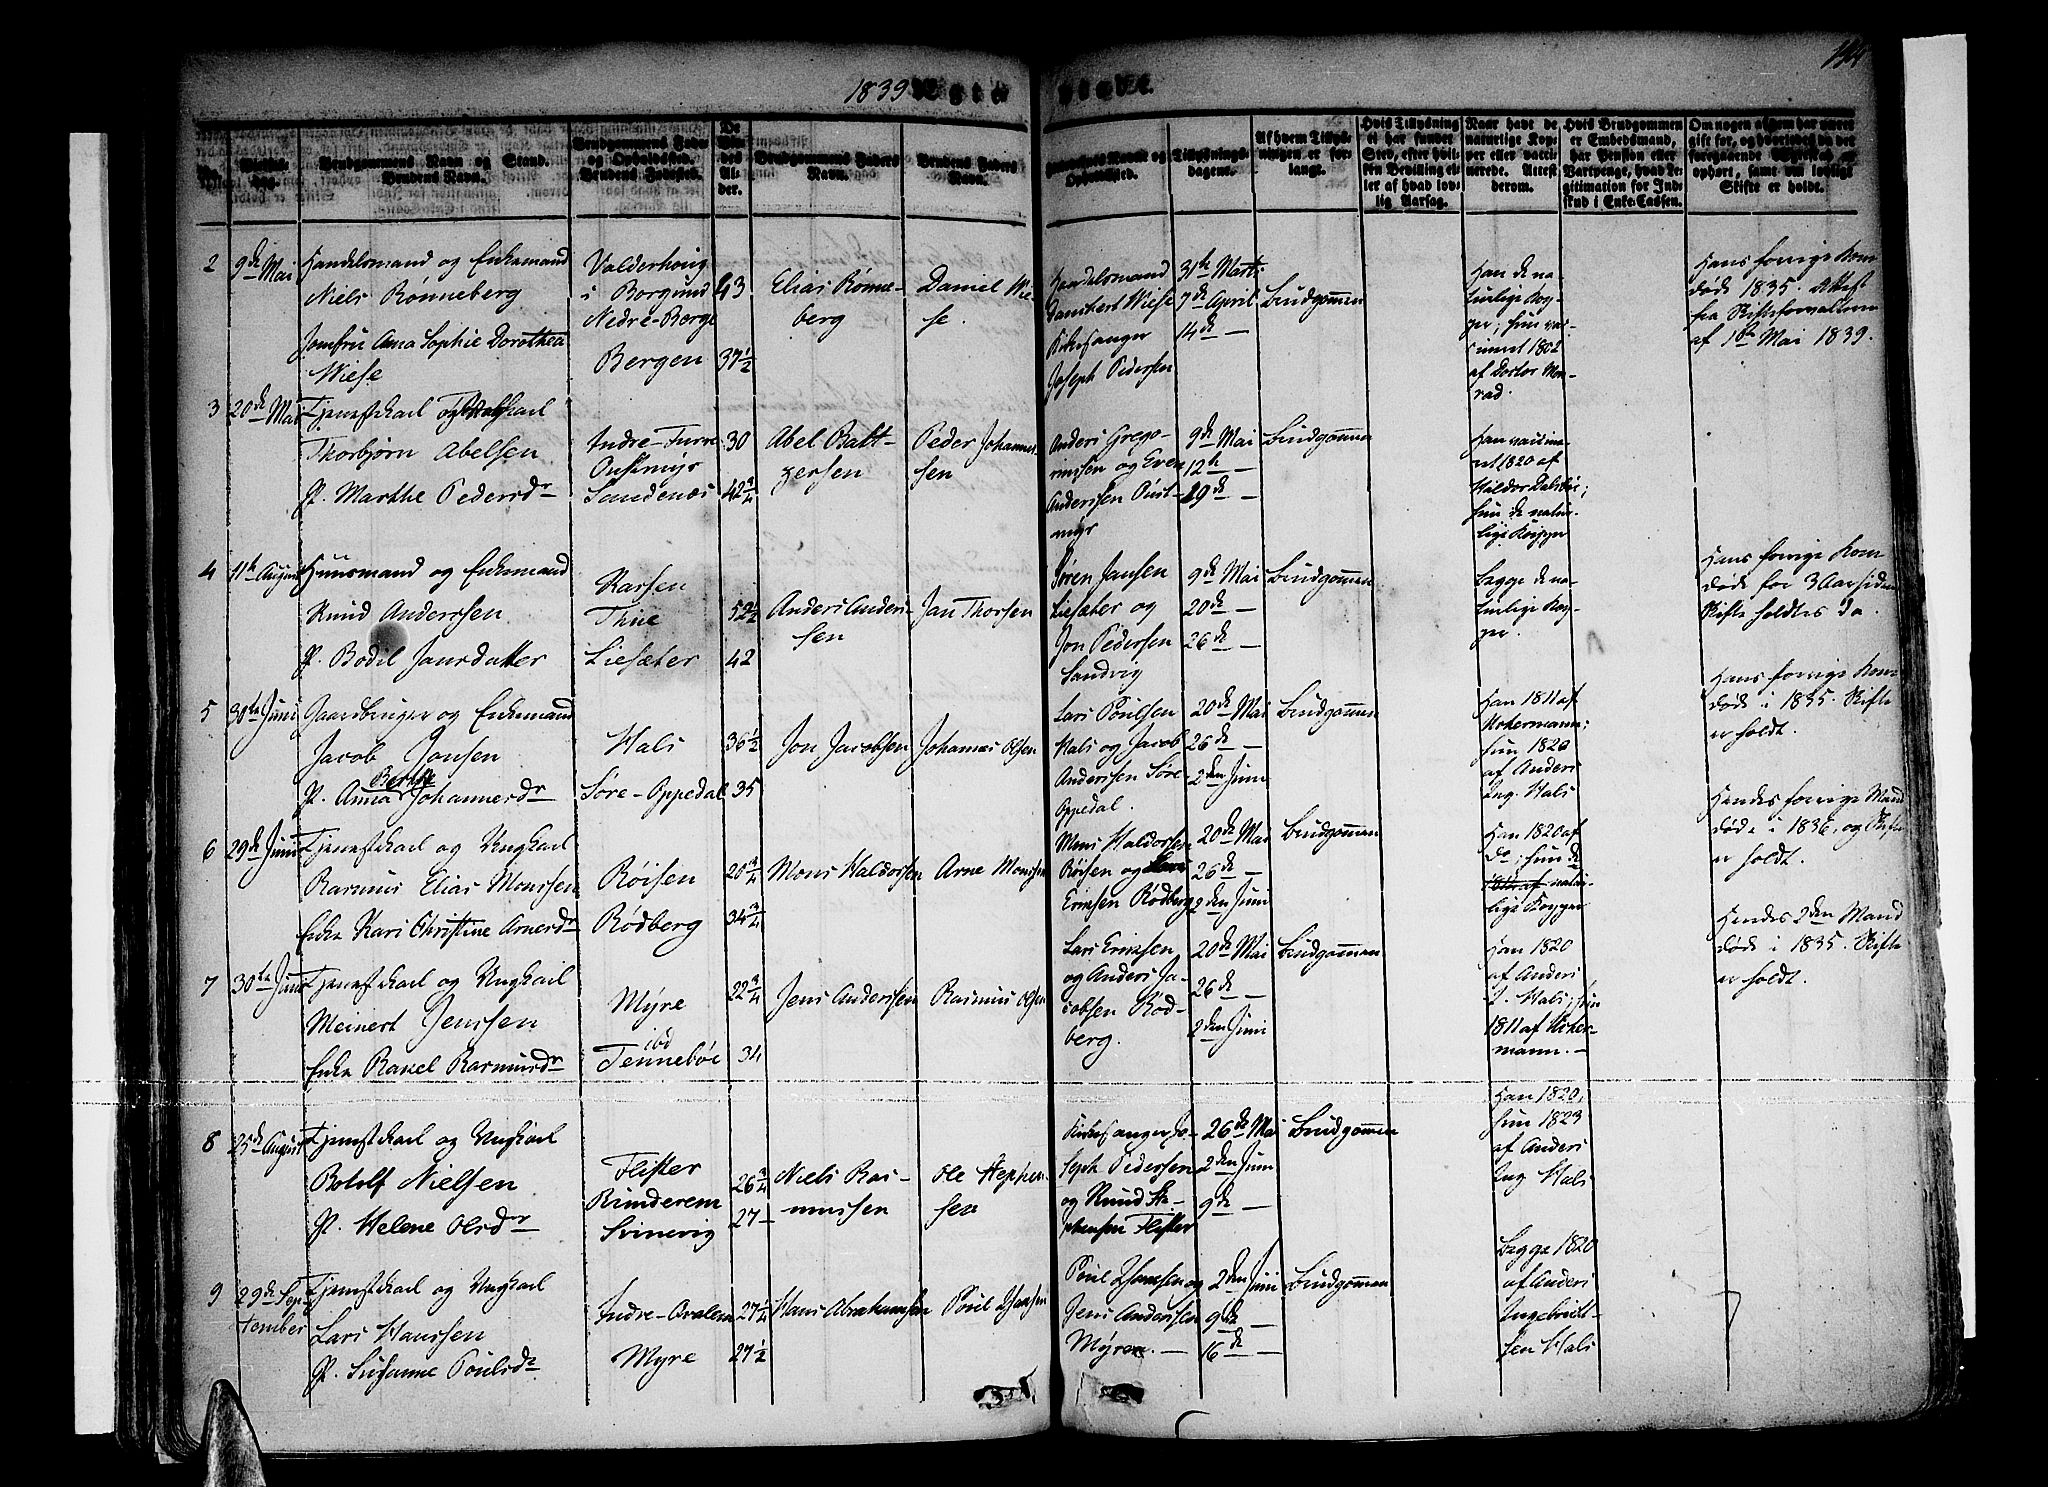 1839
144
Vielses-
dag.
Brudgommens Navn og Stand.
Brudens Navn.
Brudgommens Føde-
og Opholdssted.
Brudens Fødested.
De
Vi-
edes
Al-
der.
Brudgommens Faders
Navn.
Brudens Faders
Navn.
Forlovernes Navne og
Opholdssted.
Tillysnings-
dagene.
Af hvem Tillys-
ningen er for-
langt.
Hvis Tillysning
ei har fundet
Sted, efter hvil-
ken Bevilling el-
ler af hvad lov-
lig Aarsag.
Naar havt de
naturlige Kop-
per eller vacci-
nerede. Attest
derom.
Hvis Brudgommen
er Embedsmand,
har Pension eller
Vartpenge, hvad Le-
gitimation for Ind-
skud i Enke-Cassen.
Om nogen af dem har været
gift før, og hvorledes da det
foregaaende Ægteskab er
ophørt, samt om lovligt
Skifte er holdt.
2
9de Mai
Handelsmand og Enkemand
Niels Rønneberg
Jomfru Anna Sophie Dorothea
Wiese
Valderhoug
i Borgund
Nedre-Borge
Bergen
43
37½
Elias Rønne-
berg
Daniel Wie-
se.
Handelsmand
Wiese
Kirkesanger
Joseph Pedersen
31te Marts
7de April
14de —
Brudgommen
Han de na-
turlige Kop-
per; hun vac-
cineret 1802
af Doctor Mon-
rad.
Hans forrige Kone
døde 1835. Attest
fra Skifteforvalteren
af 1ste Mai 1839.
3
20de Mai
Tjenestekarl og Ungkarl
Thorbjørn Abelsen
P. Marthe Pedersdr
Indre-Furre
Oustmyr
Sandenæs
30
42¾
Abel Balt-
zersen
Peder Johannes-
sen
Anders Grego-
riussen og Even
Andersen Oust-
myr
9de Mai
12te —
19de —
Brudgommen
Han vaccine-
ret 1820 af
Haldor Dalsbøe;
hun de natur-
lige Kopper
4
11te August
Huusmand og Enkemand
Knud Anderssen
P. Bodil Jansdatter
Karsen
Thue
Liesæter
52½
42
Anders Anders-
sen
Jan Thorsen
Søren Jansen
Liesæter og
Jon Pedersen
Sandvig
9de Mai
20de —
26de —
Brudgommen
Begge de na-
turlige Kop-
per.
Hans forrige Kone
døde for 3 Aar siden
Skifte holdtes da.
5
30te Juni
Gaardbruger og Enkemand
Jacob Jonsen
Berthe
P. Anna Johannesdr
Hals
Søre-Oppedal
36½
35
Jon Jacobsen
Johannes Olsen
Lars Poulsen
Hals og Jacob
Anderssen Søre-
Oppedal.
20de Mai
26de —
2den Juni
Brudgommen
Han 1811 af
Ukermann;
hun 1820
af Anders
Ing. Hals
Hans forrige Kone
døde i 1835. Skifte
er holdt.
6
29de Juni
Tjenestekarl og Ungkarl
Rasmus Elias Monssen
Enke Kari Christine Arnesdr
Røisen
Rødberg
20¾
34¾
Mons Haldorsen
Arne Monssen
Mons Haldorsen
Røisen og Lars
Ericksen Rødberg
20de Mai
26de —
2den Juni
Brudgommen
Han 1820 af
do; hun de
1811 af natur-
lige Kopper
Hendes forrige Mand
døde i 1836, og Skifte
er holdt.
7
30te Juni
Tjenestekarl og Ungkarl
Meinert Jenssen
Enke Rakel Rasmusdr
Myre
ibd
Tennebøe
22¾
34
Jens Anderssen
Rasmus Olsen
Lars Ericksen
og Anders Ja-
cobsen Rød-
berg.
20de Mai
26de —
2den Juni
Brudgommen
Han 1820
af Anders
I. Hals, hun
1811 af Uker-
mann. —
Hendes 2den Mand
døde i 1835. Skifte
er holdt.
8
25de August
Tjenestekarl og Ungkarl
Botolf Nielsen
P. Helene Olsdr
Flister
Runderem
Svinevig
26¾
27 —
Niels Ras-
mussen
Ole Heppen-
sen
Kirkesanger Jo-
seph Pedersen
og Knud Ste-
phensen Flister
26de Mai
2den Juni
9de —
Brudgommen
Han 1820,
hun 1823
af Anders
Ing Hals
9
29de Sep-
tember
Tjenestekarl og Ungkarl
Lars Hanssen
P. Susanne Poulsdr
Indre-Qvalem
Myre
27¼
27½
Hans Abrahamsen
Poul Hansen
Poul Hansen og
Jens Anderssen
Myre. —
2den Juni
9de
16de
Brudgommen
Begge 1820
af Anders
Ingebrigt-
sen Hals